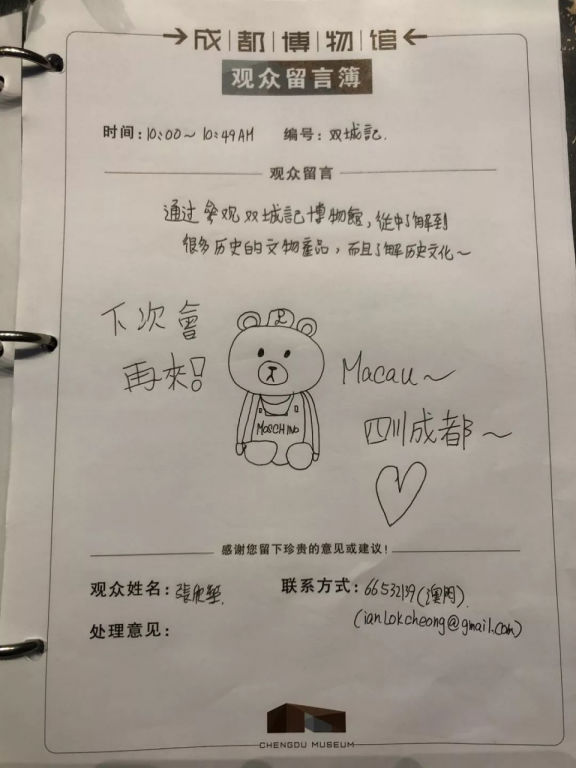 成都博物馆
观众留言簿
时间：10:00~10:49AM 编号：双城記.
观众留言
通过参观双城記博物館，從中了解到
很多历史的文物產品，而且了解历史文化~
下次會
再來！
MOSCHINO
Macau~
四川成都~
感谢您留下珍贵的意见或建议！
观众姓名：張欣
联系方式：66532139(澳門).
(ianlokcheong@gmail.com)
处理意见：
CHENGDU MUSEUM